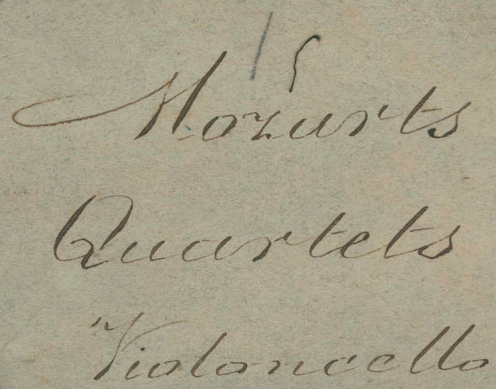 15
Mozarts
Quartets
Violoncello